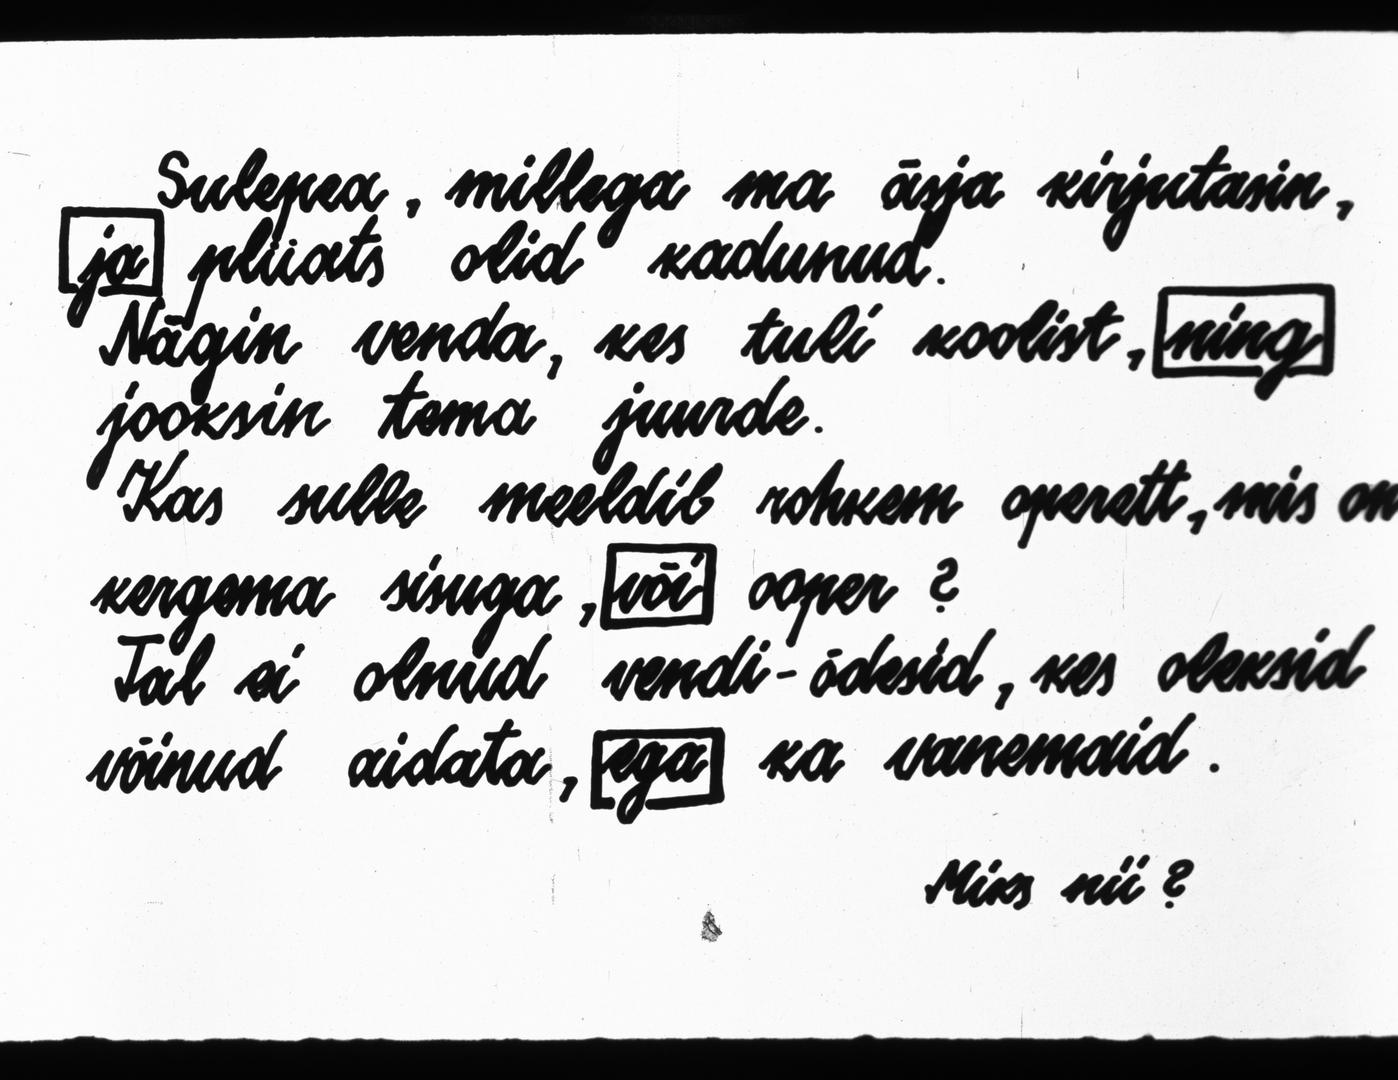 Sulepea, millega ma äsja kirjutasin,
ja pliiats olid kadunud.
Nägin venda, kes tuli koolist, ning
jooksin tema juurde.
Kas sulle meeldib rohkem operett, mis on
kergema sisuga, või ooper?
Tal ei olnud vendi-õdesid, kes oleksid
võinud aidata, ega ka vanemaid.
Miks nii?